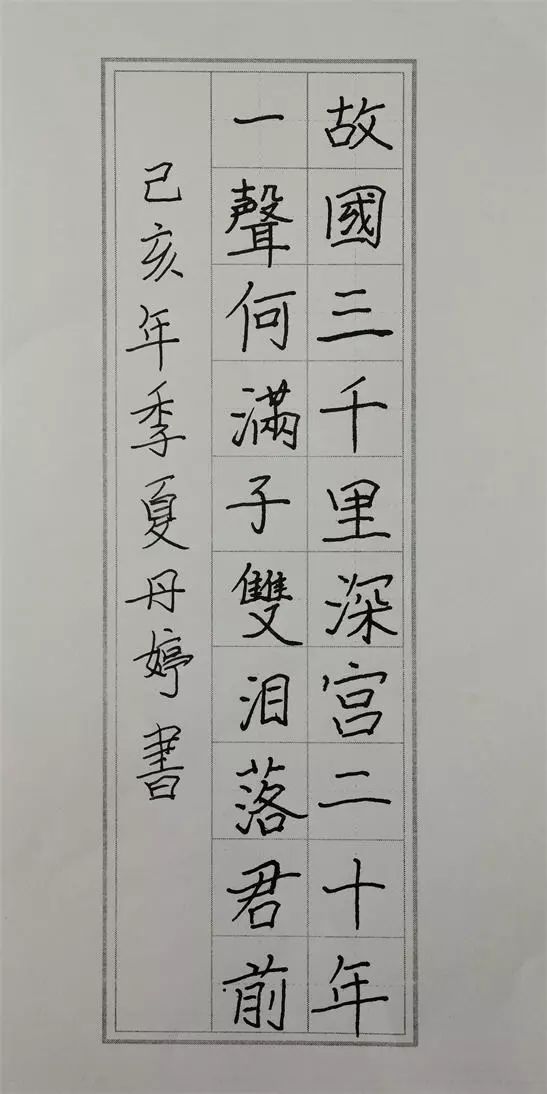 故國三千里深宮二十年
一聲何滿子雙泪落君前
己亥年季夏丹婷書